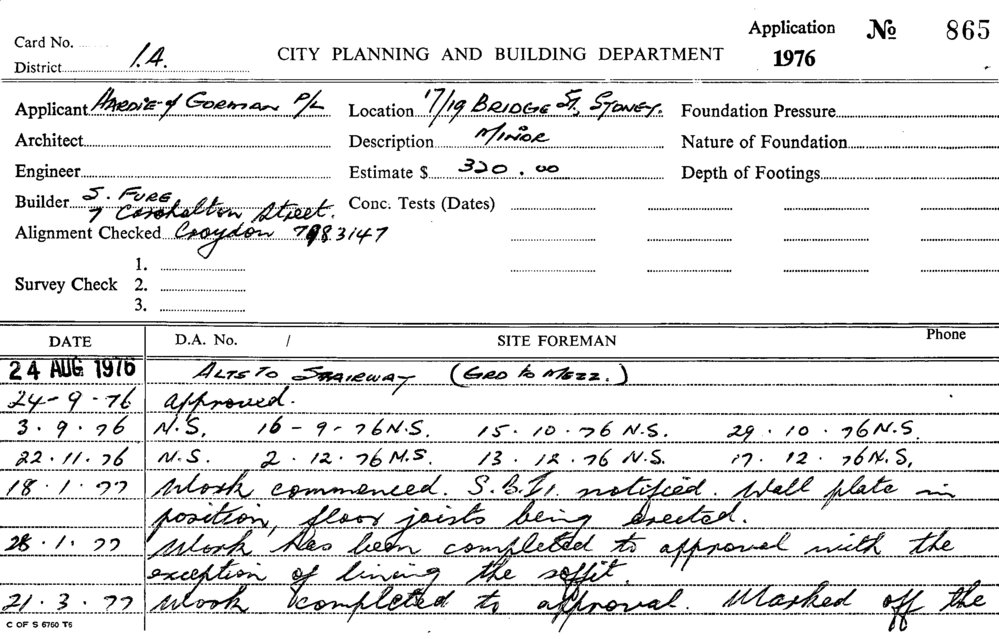 Application No 865
Card No.
1976
District 1A.
CITY PLANNING AND BUILDING DEPARTMENT
Applicant HARDIE & GORMAN P/L Location 17/19 BRIDGE ST, SYDNEY. Foundation Pressure
Architect Description MINOR Nature of Foundation
Engineer Estimate $ 320.00 Depth of Footings
Builder S. FURE Conc. Tests (Dates)
7 Carshalton Street.
Alignment Checked Croydon 7983147
1.
Survey Check 2.
3.
DATE D.A. No. / SITE FOREMAN Phone
24 AUG 1976 ALTS TO STAIRWAY (GRD to MEZZ.)
24-9-76 approved.
3.9.76 N.S. 16-9-76 N.S. 15.10.76 N.S. 29.10.76 N.S.
22.11.76 N.S. 2.12.76 N.S. 13.12.76 N.S. 17.12.76 N.S.
18.1.77 Work commenced. S.B.I. notified. Wall plate in
position, floor joists being erected.
28.1.77 Work has been completed to approval with the
exception of lining the soffit.
21.3.77 Work completed to approval. Marked off the
C OF S 6760 T6